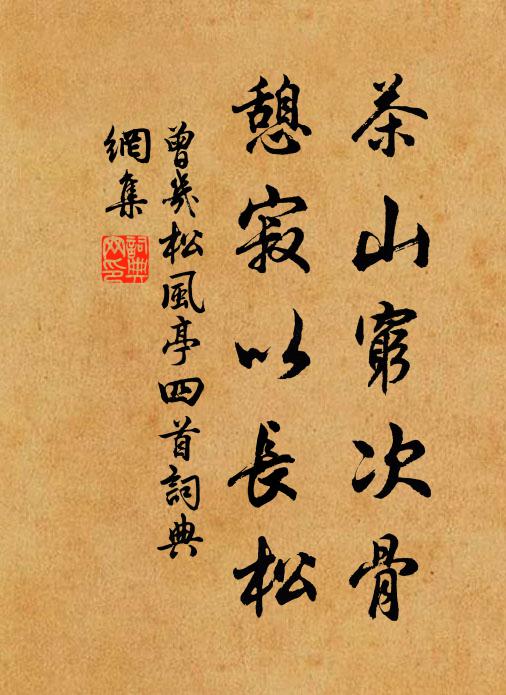 茶山窮次骨
憩寂以長松
曾幾松風亭四首詞典
網集
詞典
网印